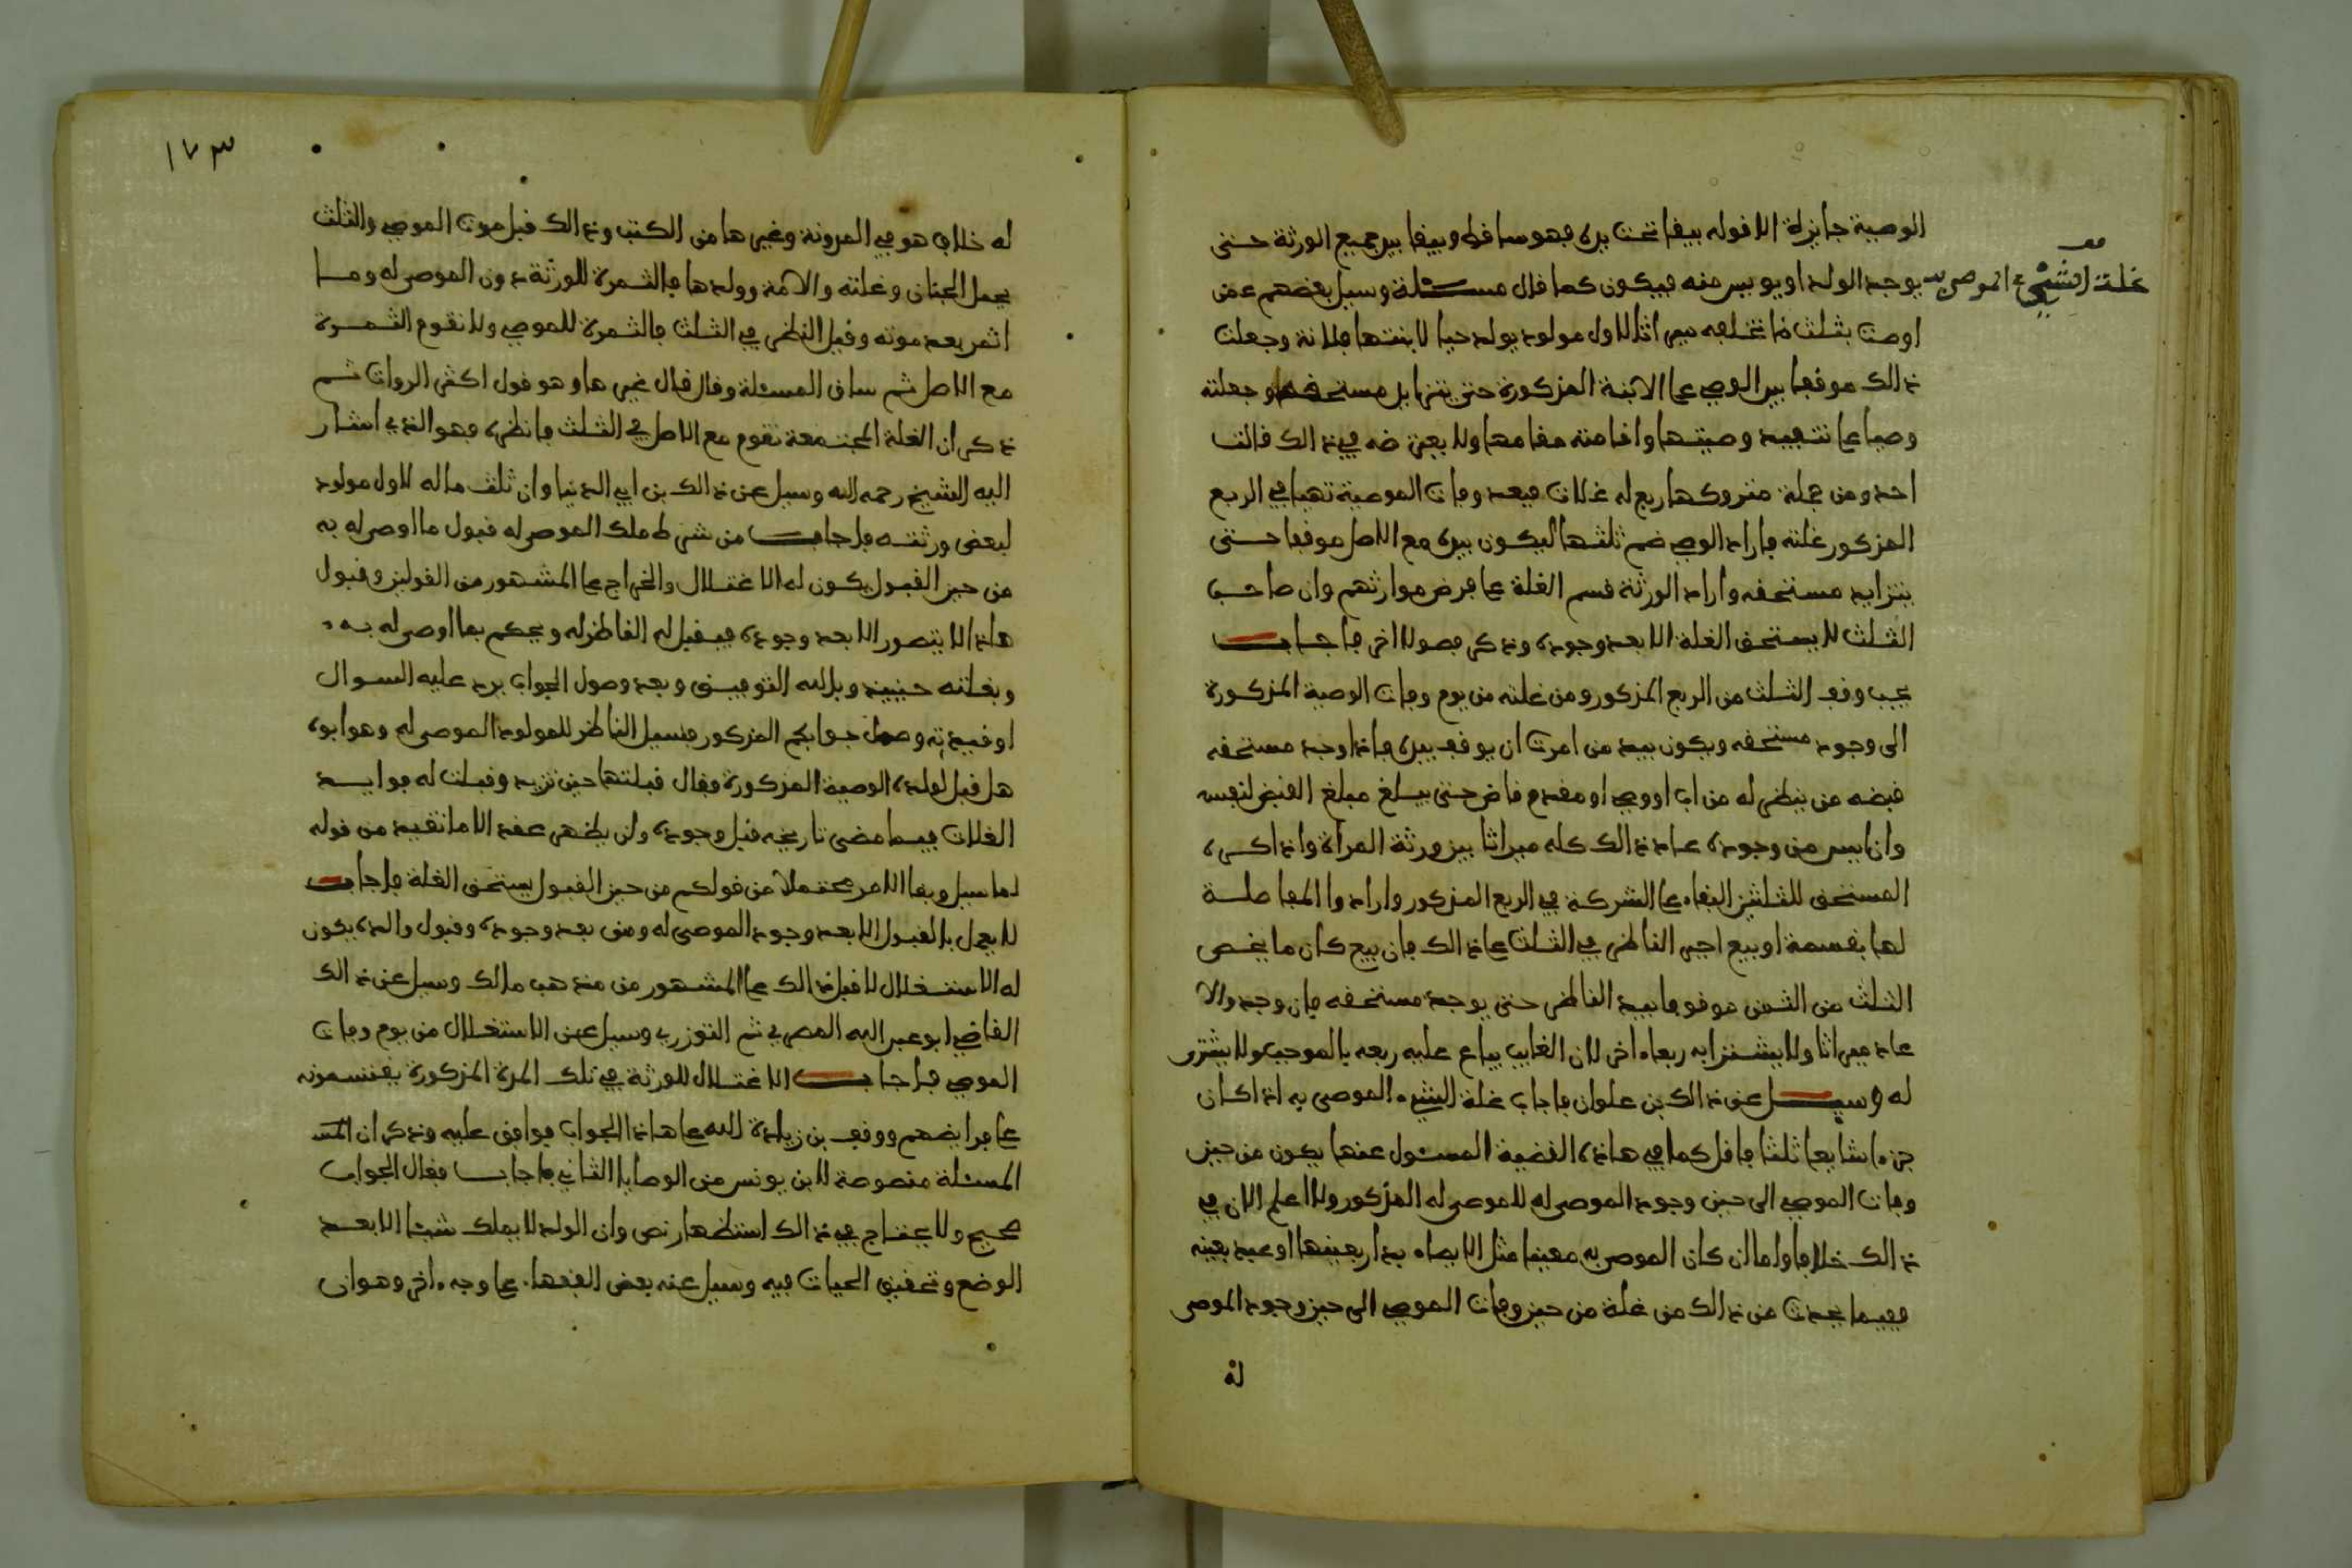 الوصية جايزة الا قوله يبقا تحت يده فهو ساقط ويبقا بيد جميع الورثة حتى
يوجد الولد او يويس منه فيكون كما قال مسئلة وسيل بعضهم عمن
غلة الشيء الموصى به
اوصت بثلث ما تخلفه ميراثا لاول مولود يولد حيا لابنتها فلانة وجعلت
ذالك موقفا بيد الوصي على الابنة المذكورة حتى يتزايد مستحقه وجعلته
وصيا على تنفيذ وصيتها واقامته مقامها ولا يعترضه في ذالك قالت
احد ومن جملة متروكها ربع له غلات فبعد وفات الموصية تهيا في الربع
المذكور غلته فاراد الوصي ضم ثلثها ليكون بيده مع الاصل موقفا حتى
يتزايد مستحقه واراد الورثة قسم الغلة على فرض موارثهم وان صاحب
الثلث لا يستحق الغلة الا بعد وجوده وذكر فصولا اخر فاجاب
يجب وقف الثلث من الربع المذكور ومن غلته من يوم وفات الوصية المذكورة
الى وجود مستحقه ويكون بيد من امرت ان يوقف بيده فاذا وجد مستحقه
قبضه من ينظر له من اب او وصي او مقدم قاض حتى يبلغ مبلغ القبض لنفسه
وان ايس من وجوده عاد ذالك كله ميراثا بين ورثة المراة واذا كره
المستحق للثلثين البقاء على الشركة في الربع المذكور وارادوا المفاصلة
لها بقسمة او بيع اجبر الناظر في الثلث على ذالك فان بيع كان ما يخص
الثلث من الثمن موقوفا بيد الناظر حتى يوجد مستحقه فان وجد والا
عاد ميراثا ولا يشترا به ربعا اخر لان الغايب يباع عليه ربعه بالموجب ولا يشترى
له وسيل عن ذالك بن علوان فاجاب غلة الشيء الموصى به اذا كان
جزءا شايعا ثلثا فاقل كما في هاذه القضية المسئول عنها يكون من حين
وفات الموصي الى حين وجود الموصى له للموصى له المذكور ولا اعلم الان في
ذالك خلافا واما ان كان الموصى به معينا مثل الايصاء بدار بعينها او عبد بعينه
ففيما يحدث من ذالك من غلة من حين وفات الموصي الى حين وجود الموصى
له
١٧٣
له خلاف هو في المدونة وغيرها من الكتب وذالك قبل موت الموصي والثلث
يحمل الجنان وغلته والامة وولدها فالثمرة للورثة دون الموصى له وما
اثمر بعد موته وقبل النظر في الثلث فالثمرة للموصي ولا تقوم الثمرة
مع الاصل ثم ساق المسئلة وقال قال غيرها وهو قول اكثر الروات ثم
ذكر ان الغلة المجتمعة تقوم مع الاصل في الثلث فانظره فهو الذي اشار
اليه الشيخ رحمه الله وسيل عن ذالك بن ابي الدنيا وان ثلث ماله لاول مولود
لبعض ورثته فاجاب من شرط ملك الموصى له قبول ما اوصى له به
من حين القبول يكون له الاغتلال والخراج على المشهور من القولين وقبول
هاذا لا يتصور الا بعد وجوده فيقبل له الناظر له ويحكم بما اوصى له به
وبغلته حينيذ وبالله التوفيق وبعد وصول الجواب يرد عليه السوال
اوقيدته وصل جوابكم المذكور فسيل الناظر للمولود الموصى له وهو ابوه
هل قبل لولده الوصية المذكورة فقال قبلتها حين تزيد وقبلت له فوايد
الغلات فيما مضى تاريخه قبل وجوده ولن يظهر عقد الا ما تقيد من قوله
لما سيل وبقا الامر محتملا من قولكم من حين القبول يستحق الغلة فاجاب
لا يعمل بالقبول الا بعد وجود الموصى له ومن بعد وجوده وقبول والده يكون
له الاستغلال لا قبل ذالك على المشهور من مذهب مالك وسيل عن ذالك
القاضي ابو عبد الله المصري ثم التوزري وسيل عن الاستغلال من يوم وفات
الموصي فاجاب الاغتلال للورثة في تلك المدة المذكورة يقتسمونه
على فرايضهم ووقف بن زيادة الله على هاذا الجواب فوافق عليه وذكر ان
المسئلة منصوصة لابن يونس من الوصايا الثاني فاجاب فقال الجواب
صحيح ولا يحتاج في ذالك استظهار نص وان الولد لا يملك شيئا الا بعد
الوضع وتحقيق الحيات فيه وسيل عنه بعض الفقهاء على وجه اخر وهو ان